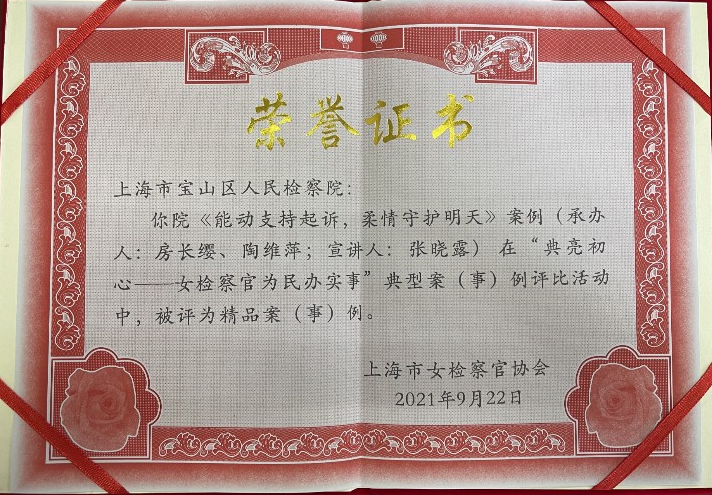 荣誉证书
上海市宝山区人民检察院：
你院《能动支持起诉，柔情守护明天》案例（承办
人：房长缨、陶维萍；宣讲人：张晓露）在“典亮初
心——女检察官为民办实事”典型案（事）例评比活动
中，被评为精品案（事）例。
上海市女检察官协会
2021年9月22日